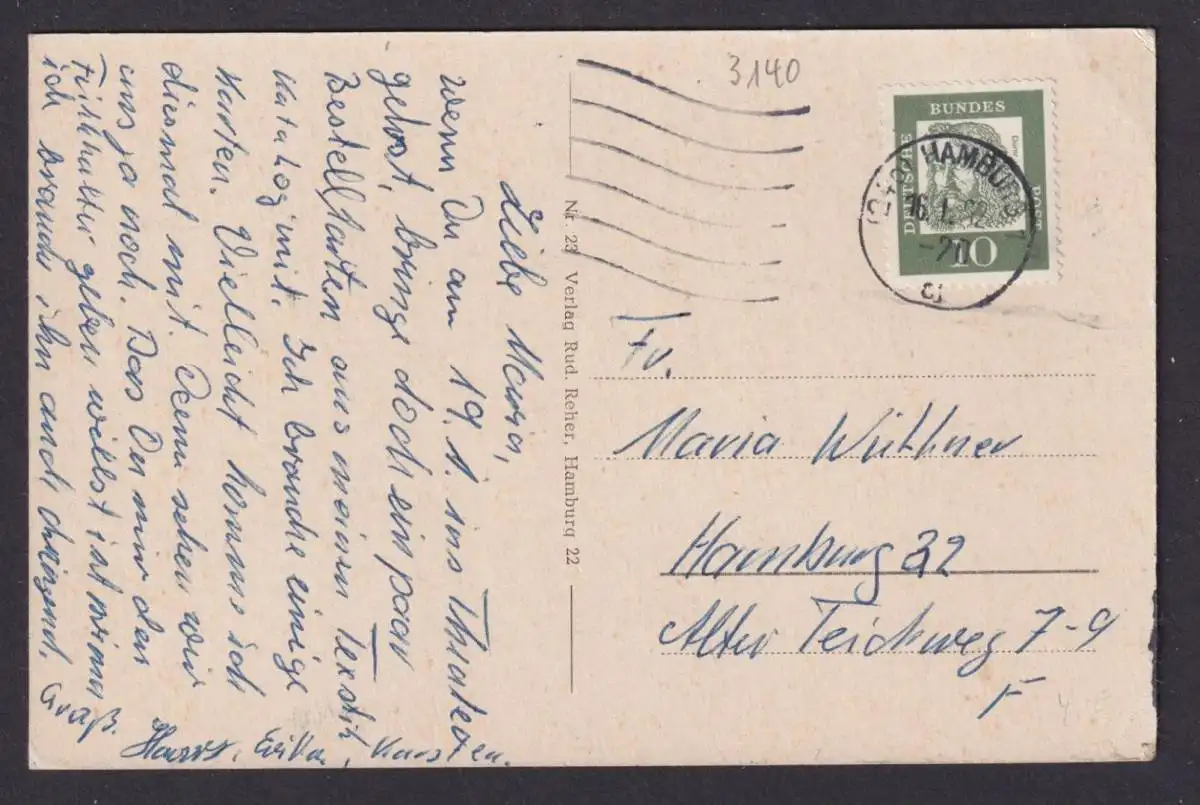 Liebe Maria,
wenn Du am 19. 1. ins Theater
gehst, bringe doch ein paar
Bestellkarten aus meinem
Katalog mit. Ich brauche einige
Karten. Vielleicht komme ich
diesmal mit. Dann sehen wir
uns ja noch. Das Du mir den
geben willst ist prima
ich brauche ihn auch dringend.
Gruß.
Erika, Karsten.
Nr. 23 Verlag Rud. Reher, Hamburg 22
3140
DEUTSCHE
BUNDES
POST
10
HAMBURG 1
16. 1. 62
-20
Maria Wüthner
Hamburg 22
Alter Teichweg 7-9
F